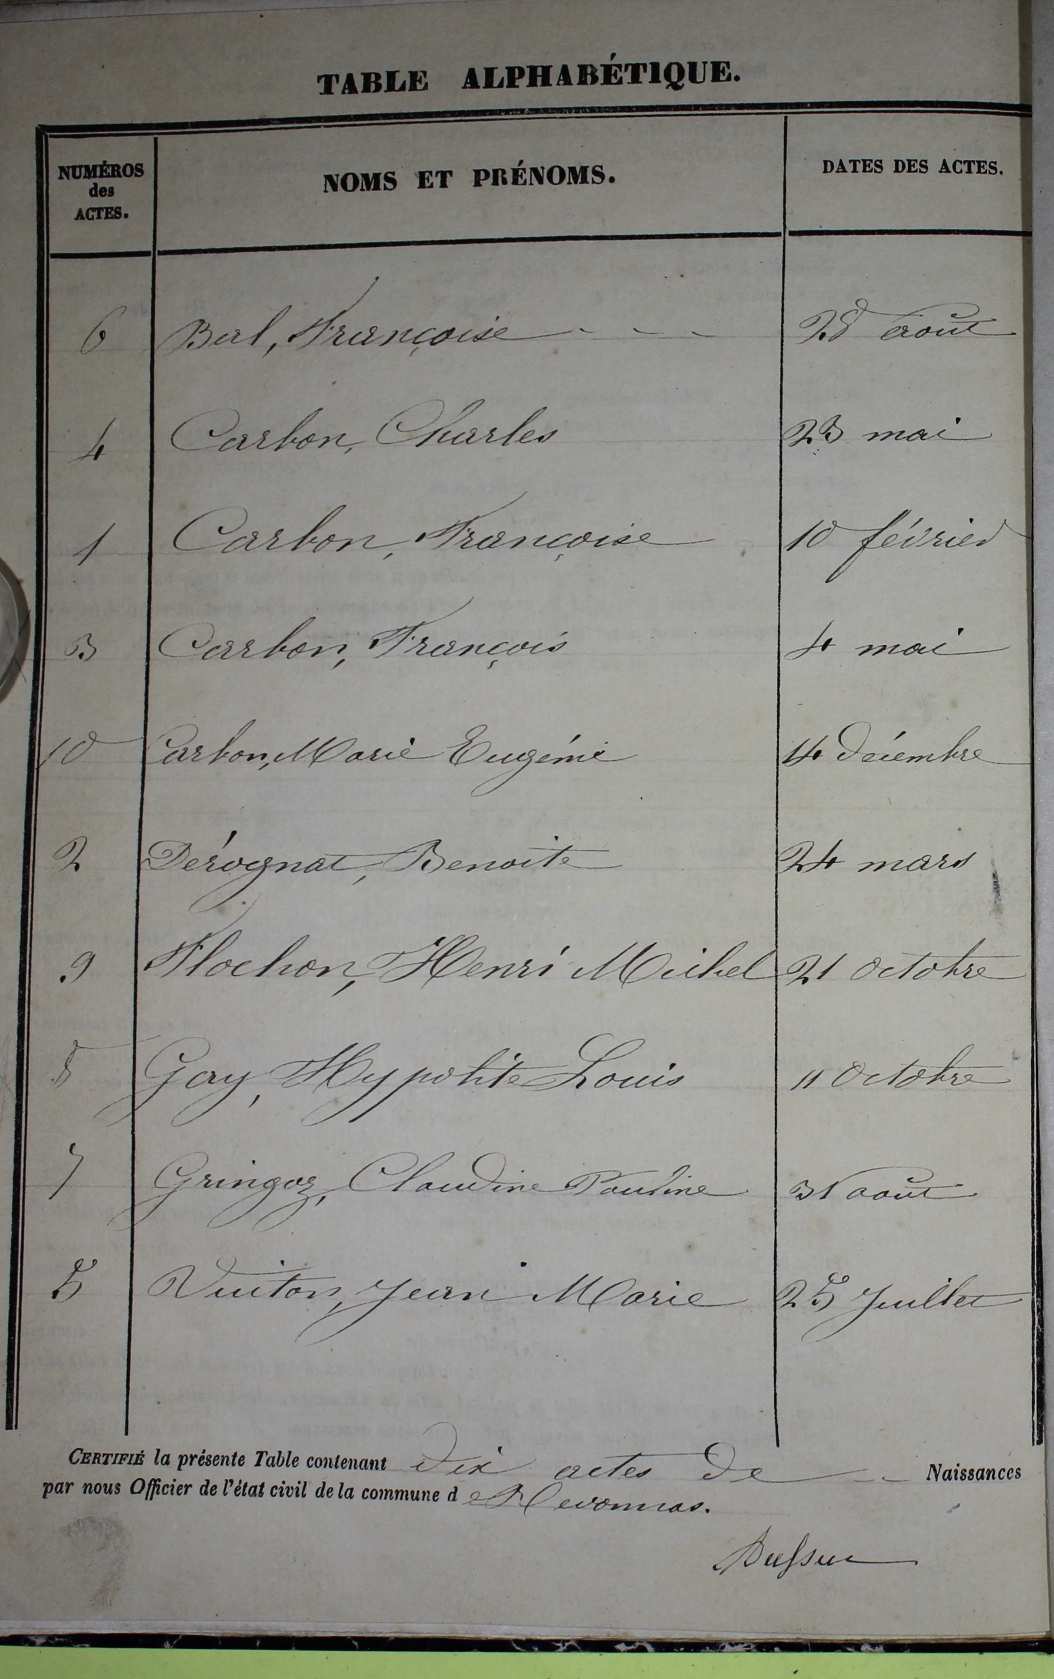 TABLE ALPHABÉTIQUE.
NUMÉROS des ACTES. NOMS ET PRÉNOMS. DATES DES ACTES.
6 Bal, Françoise 28 août
4 Carbon, Charles 23 mai
1 Carbon, Françoise 10 février
3 Carbon, François 4 mai
10 Carbon, Marie Eugénie 4 décembre
2 Dérognat, Benoite 24 mars
9 Flochon, Henri Michel 21 octobre
8 Gay, Hypolite Louis 11 octobre
7 Gringoz, Claudine Pauline 31 août
5 Vuiton, Jean Marie 25 Juillet
CERTIFIÉ la présente Table contenant dix actes de Naissances
par nous Officier de l'état civil de la commune de Revonnas.